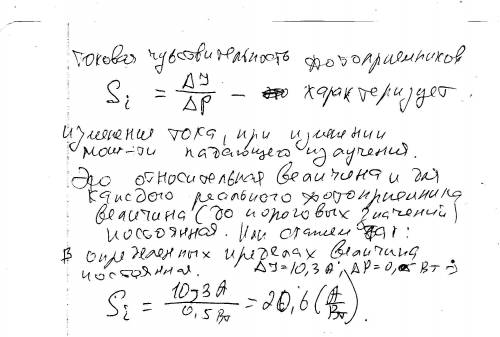 Токовая чувствительность фотоприемников
Si = ΔY/ΔP – характеризует
изменения тока, при изменении
мощ-ти падающего излучения.
Это относительная величина и для
каждого реального фотоприемника
величина (до пороговых значений)
постоянная. Или станем так:
В определенных пределах величина
постоянная. ΔY=10,3 А; ΔP=0,5 Вт
Si = 10,3 А/0,5 Вт = 20,6 (А/Вт).